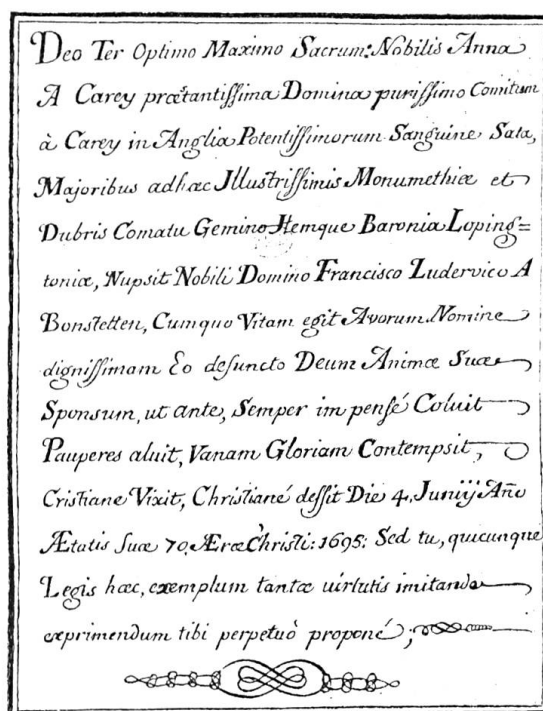 Deo Ter Optimo Maximo Sacrum: Nobilis Anna
A Carey prætantissima Domina purissimo Comitum
à Carey in Anglia Potentissimorum Sanguine Sata,
Majoribus adhæc Jllustrissimis Monumethiæ et
Dubris Comatu Gemino Jtemque Baronia Loping=
toniæ, Nupsit Nobili Domino Francisco Ludervico A
Bonstetten, Cumquo Vitam egit Avorum Nomine
dignissimam Eo defuncto Deum Animæ Suæ
Sponsum, ut ante, Semper impensé Coluit
Pauperes aluit, Vanam Gloriam Contempsit,
Cristiane Vixit, Christiané dessit Die 4. Junÿ Año
Ætatis suæ 70. Æræ Christi: 1695: Sed tu, quicunque
Legis hæc, exemplum tantæ virtutis imitanda
exprimendum tibi perpetuò proponé;